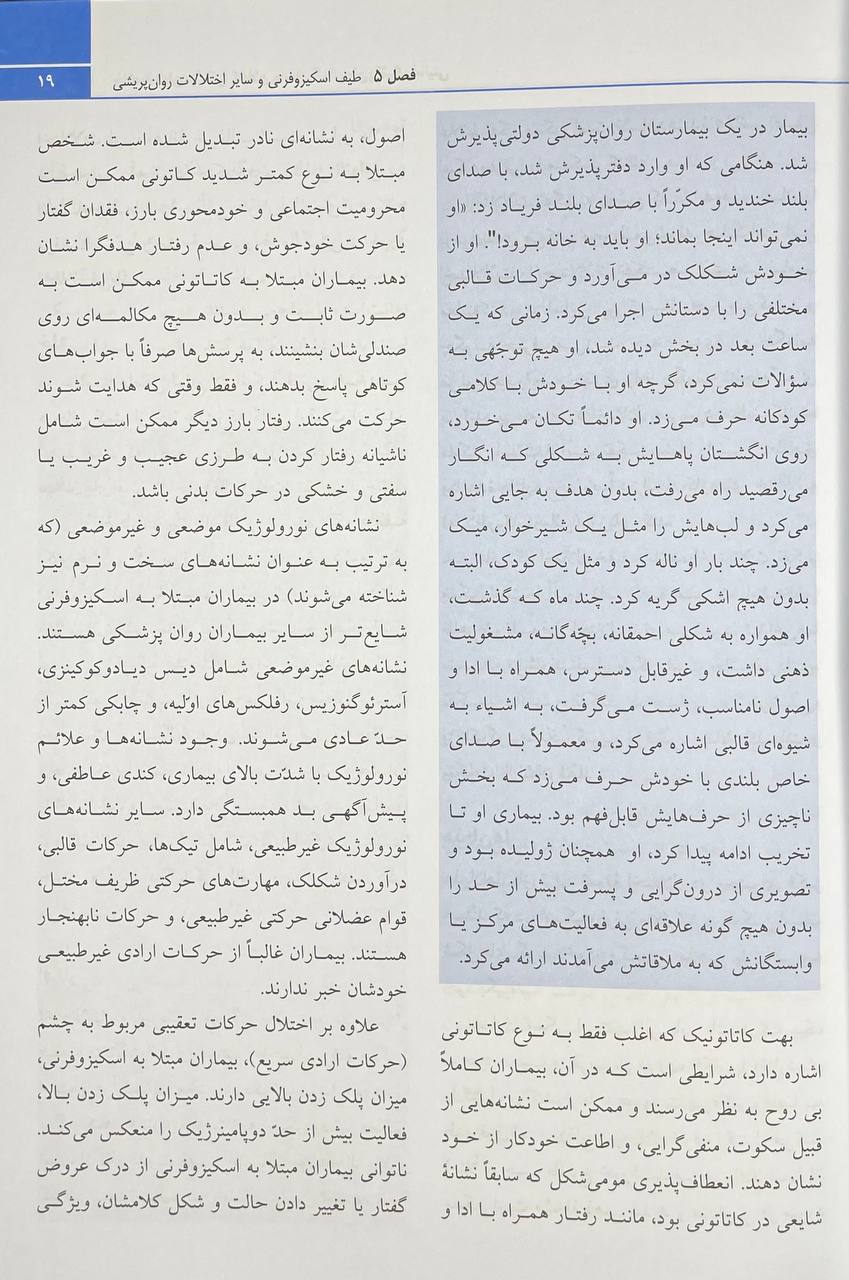 فصل ۵ طیف اسکیزوفرنی و سایر اختلالات روان‌پریشی
۱۹
بیمار در یک بیمارستان روان‌پزشکی دولتی پذیرش
شد. هنگامی که او وارد دفترپذیرش شد، با صدای
بلند خندید و مکرّراً با صدای بلند فریاد زد: «او
نمی‌تواند اینجا بماند؛ او باید به خانه برود!". او از
خودش شکلک در می‌آورد و حرکات قالبی
مختلفی را با دستانش اجرا می‌کرد. زمانی که یک
ساعت بعد در بخش دیده شد، او هیچ توجّهی به
سؤالات نمی‌کرد، گرچه او با خودش با کلامی
کودکانه حرف می‌زد. او دائماً تکان می‌خورد،
روی انگشتان پاهایش به شکلی که انگار
می‌رقصید راه می‌رفت، بدون هدف به جایی اشاره
می‌کرد و لب‌هایش را مثل یک شیرخوار، میک
می‌زد. چند بار او ناله کرد و مثل یک کودک، البته
بدون هیچ اشکی گریه کرد. چند ماه که گذشت،
او همواره به شکلی احمقانه، بچّه‌گانه، مشغولیت
ذهنی داشت، و غیرقابل دسترس، همراه با ادا و
اصول نامناسب، ژست می‌گرفت، به اشیاء به
شیوه‌ای قالبی اشاره می‌کرد، و معمولاً با صدای
خاص بلندی با خودش حرف می‌زد که بخش
ناچیزی از حرف‌هایش قابل‌فهم بود. بیماری او تا
تخریب ادامه پیدا کرد، او همچنان ژولیده بود و
تصویری از درون‌گرایی و پسرفت بیش از حد را
بدون هیچ گونه علاقه‌ای به فعالیت‌های مرکز یا
وابستگانش که به ملاقاتش می‌آمدند ارائه می‌کرد.
بهت کاتاتونیک که اغلب فقط به نوع کاتاتونی
اشاره دارد، شرایطی است که در آن، بیماران کاملاً
بی روح به نظر می‌رسند و ممکن است نشانه‌هایی از
قبیل سکوت، منفی‌گرایی، و اطاعت خودکار از خود
نشان دهند. انعطاف‌پذیری مومی‌شکل که سابقاً نشانهٔ
شایعی در کاتاتونی بود، مانند رفتار همراه با ادا و
اصول، به نشانه‌ای نادر تبدیل شده است. شخص
مبتلا به نوع کمتر شدید کاتونی ممکن است
محرومیت اجتماعی و خودمحوری بارز، فقدان گفتار
یا حرکت خودجوش، و عدم رفتار هدفگرا نشان
دهد. بیماران مبتلا به کاتاتونی ممکن است به
صورت ثابت و بدون هیچ مکالمه‌ای روی
صندلی‌شان بنشینند، به پرسش‌ها صرفاً با جواب‌های
کوتاهی پاسخ بدهند، و فقط وقتی که هدایت شوند
حرکت می‌کنند. رفتار بارز دیگر ممکن است شامل
ناشیانه رفتار کردن به طرزی عجیب و غریب یا
سفتی و خشکی در حرکات بدنی باشد.
نشانه‌های نورولوژیک موضعی و غیرموضعی (که
به ترتیب به عنوان نشانه‌های سخت و نرم نیز
شناخته می‌شوند) در بیماران مبتلا به اسکیزوفرنی
شایع‌تر از سایر بیماران روان پزشکی هستند.
نشانه‌های غیرموضعی شامل دیس دیادوکوکینزی،
آسترئوگنوزیس، رفلکس‌های اوّلیه، و چابکی کمتر از
حدّ عادی می‌شوند. وجود نشانه‌ها و علائم
نورولوژیک با شدّت بالای بیماری، کندی عاطفی، و
پیش‌آگهی بد همبستگی دارد. سایر نشانه‌های
نورولوژیک غیرطبیعی، شامل تیک‌ها، حرکات قالبی،
درآوردن شکلک، مهارت‌های حرکتی ظریف مختل،
قوام عضلانی حرکتی غیرطبیعی، و حرکات نابهنجار
هستند. بیماران غالباً از حرکات ارادی غیرطبیعی
خودشان خبر ندارند.
علاوه بر اختلال حرکات تعقیبی مربوط به چشم
(حرکات ارادی سریع)، بیماران مبتلا به اسکیزوفرنی،
میزان پلک زدن بالایی دارند. میزان پلک زدن بالا،
فعالیت بیش از حدّ دوپامینرژیک را منعکس می‌کند.
ناتوانی بیماران مبتلا به اسکیزوفرنی از درک عروض
گفتار یا تغییر دادن حالت و شکل کلامشان، ویژگی